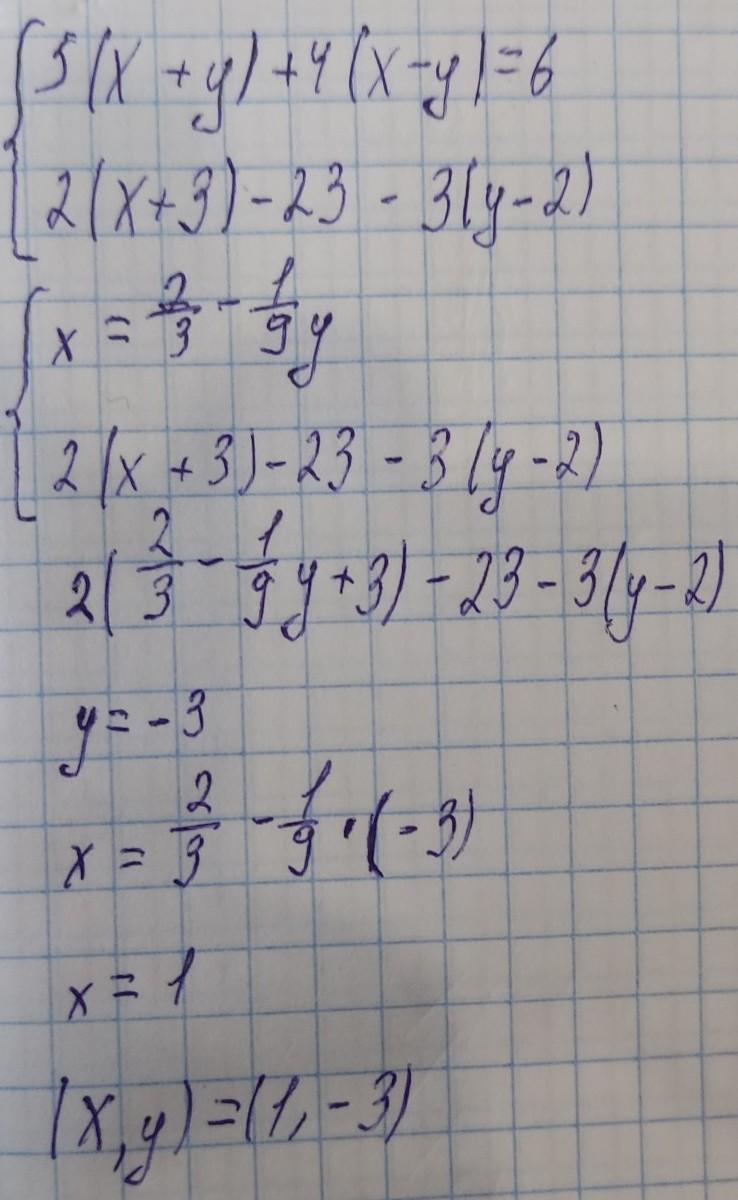 5(x+y)+4(x-y)=6
2(x+3)-23-3(y-2)
x = 2/3 - 1/9 y
2(x+3)-23-3(y-2)
2(2/3 - 1/9 y+3)-23-3(y-2)
y=-3
x = 2/3 - 1/9 · (-3)
x = 1
(x,y)=(1,-3)